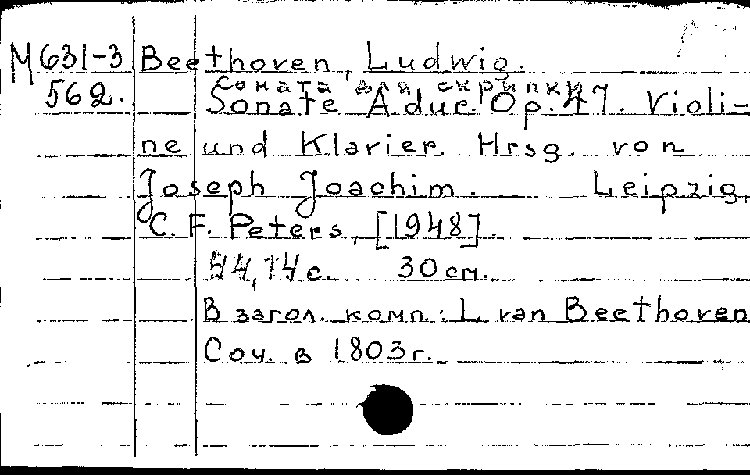 M631-3 Beethoven, Ludwig.
562. Соната для скрипки
Sonate A dur. Op. 47. Violi-
ne und Klavier. Hrsg. von
Joseph Joachim. Leipzig,
C. F. Peters, [1948].
44, 14 с. 30 см.
В загол. комп.: L. van Beethoven
Соч. в 1803 г.